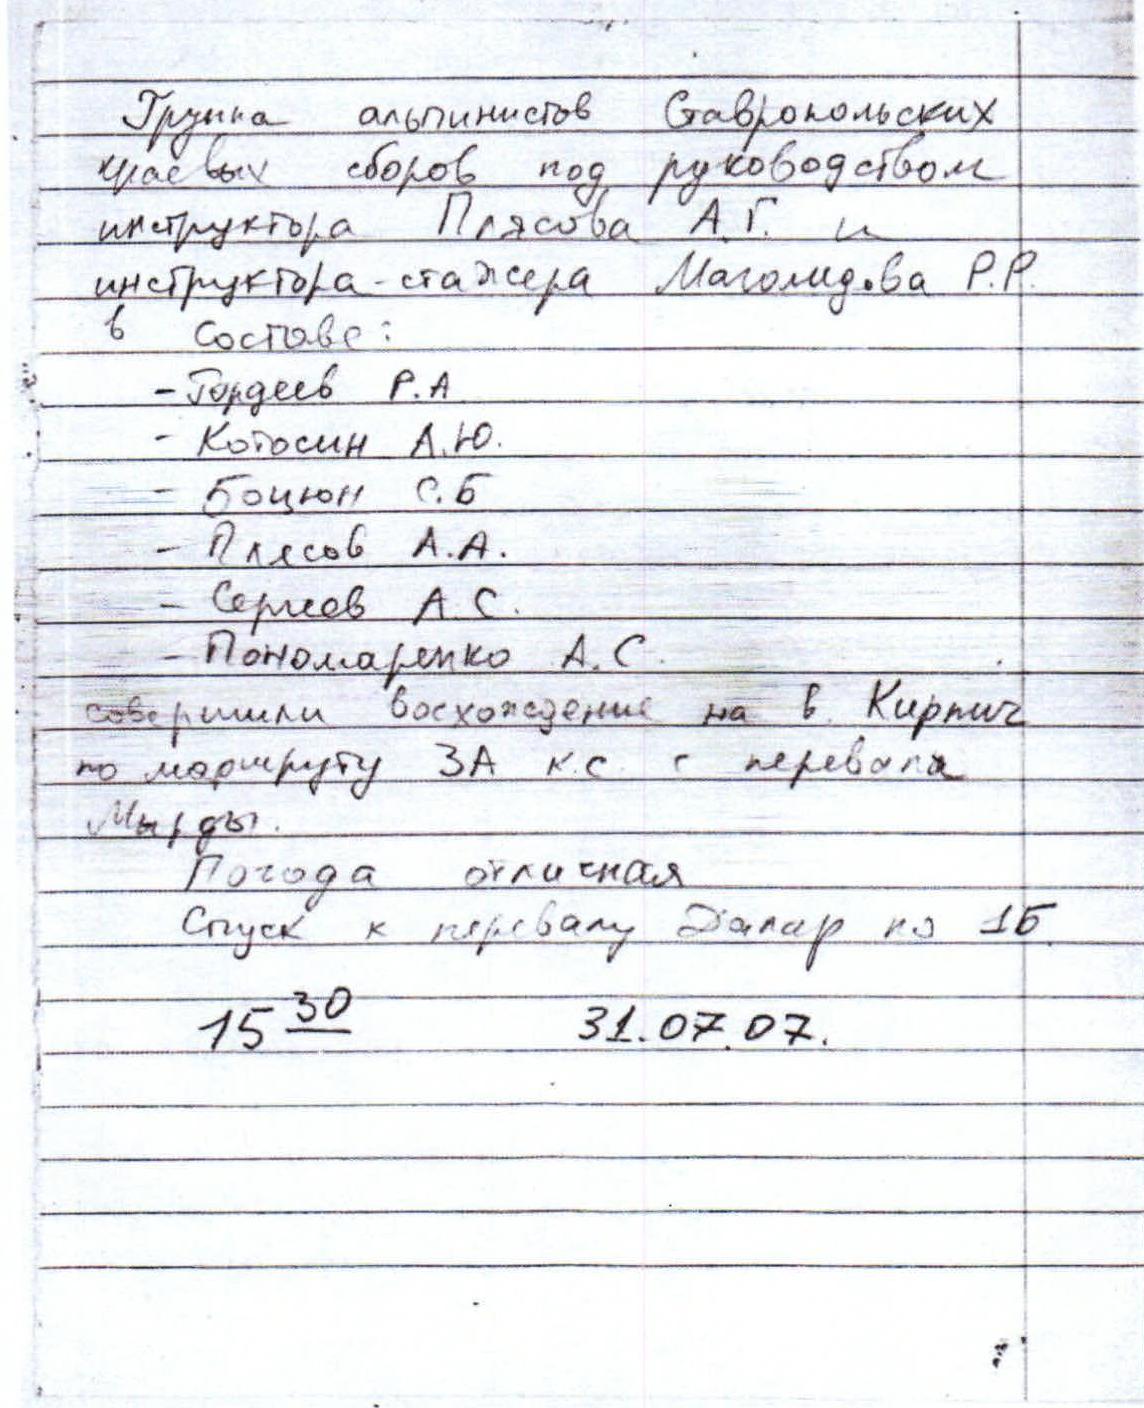 Группа альпинистов Ставропольских
краевых сборов под руководством
инструктора Плясова А.Г. и
инструктора-стажера Магомедова Р.Р.
в составе:
- Гордеев Р.А
- Котосин А.Ю.
- Боцюн С.Б
- Плясов А.А.
- Сергеев А.С.
- Пономаренко А.С.
совершили восхождение на в. Кирпич
по маршруту 3А к.с. с перевала
Мырды.
Погода отличная
Спуск к перевалу Далар по 1Б.
15 30 31.07.07.